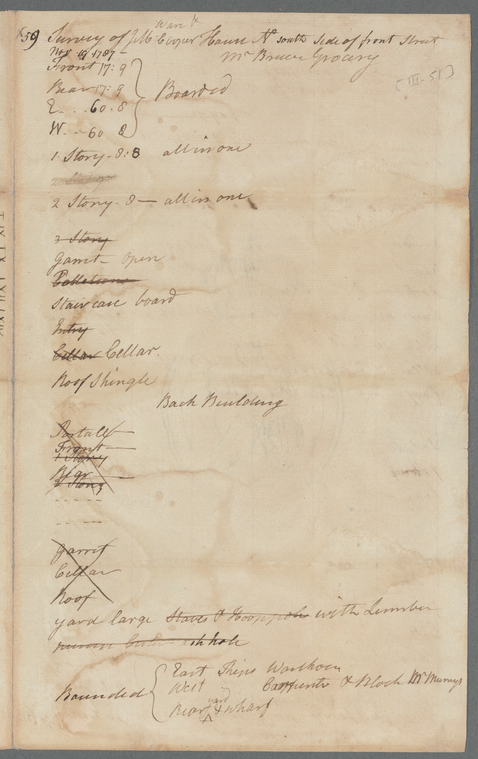 59) Survey of Cooper House No south side of front Street
Mr Bruce Grocery
Novr 19 1787
[III-51]
Front 17:9
Rear 17:9
E... 60.8
W... 60 8
Boarded
1 Story - 8:8 all in one
2 Story - 8 — all in one
3 Story
Garret - open
Staircase board
Entry
Cellar Cellar.
Roof Shingle
Back Building
Front
1 Story
Rear
2 Story
Garret
Cellar
Roof
yard large Staves & Hooppole with Lumber
ash hole
Bounded
East Ships Warehouse
West Carpenter & Block Mr Murrys
Rear yard & Wharf